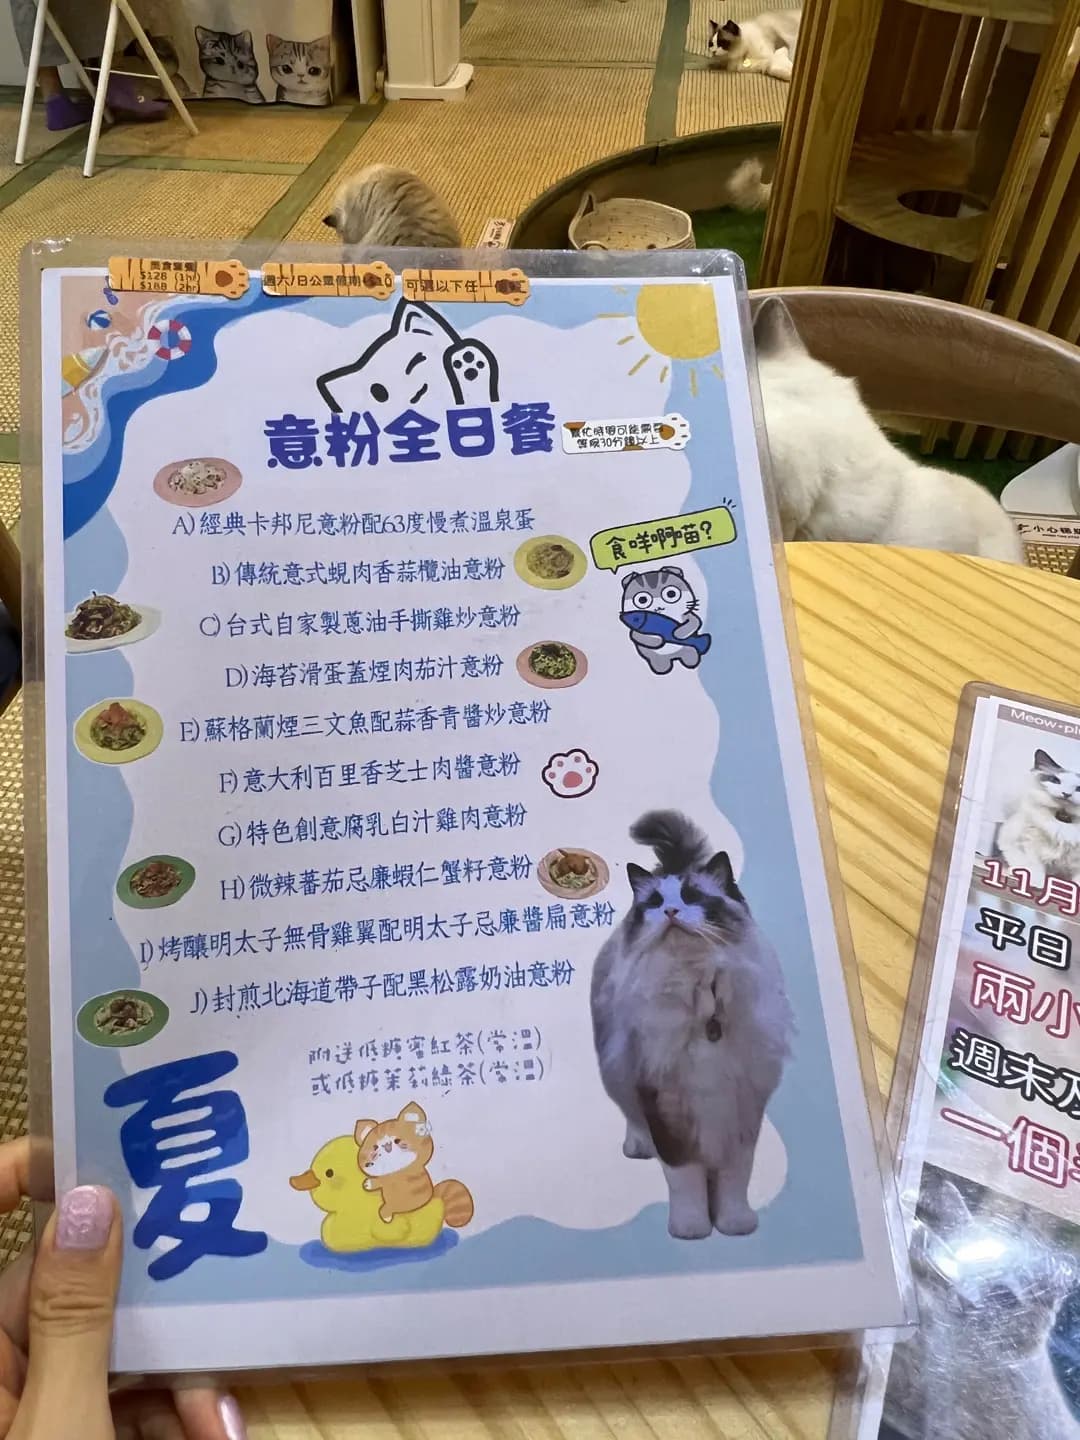 美食套餐
$128 (1hr)
$188 (2hr)
週六/日公眾假期+$10
可選以下任一個餐
意粉全日餐
繁忙時間可能需要
等候30分鐘以上
A)經典卡邦尼意粉配63度慢煮溫泉蛋
食咩啊喵?
B)傳統意式蜆肉香蒜欖油意粉
C)台式自家製蔥油手撕雞炒意粉
D)海苔滑蛋蓋煙肉茄汁意粉
E)蘇格蘭煙三文魚配蒜香青醬炒意粉
F)意大利百里香芝士肉醬意粉
G)特色創意腐乳白汁雞肉意粉
H)微辣蕃茄忌廉蝦仁蟹籽意粉
I)烤釀明太子無骨雞翼配明太子忌廉醬扁意粉
J)封煎北海道帶子配黑松露奶油意粉
附送低糖蜜紅茶(常溫)
或低糖茉莉綠茶(常溫)
夏
小心貓
Meow
11月
平日
兩小
週末及
一個